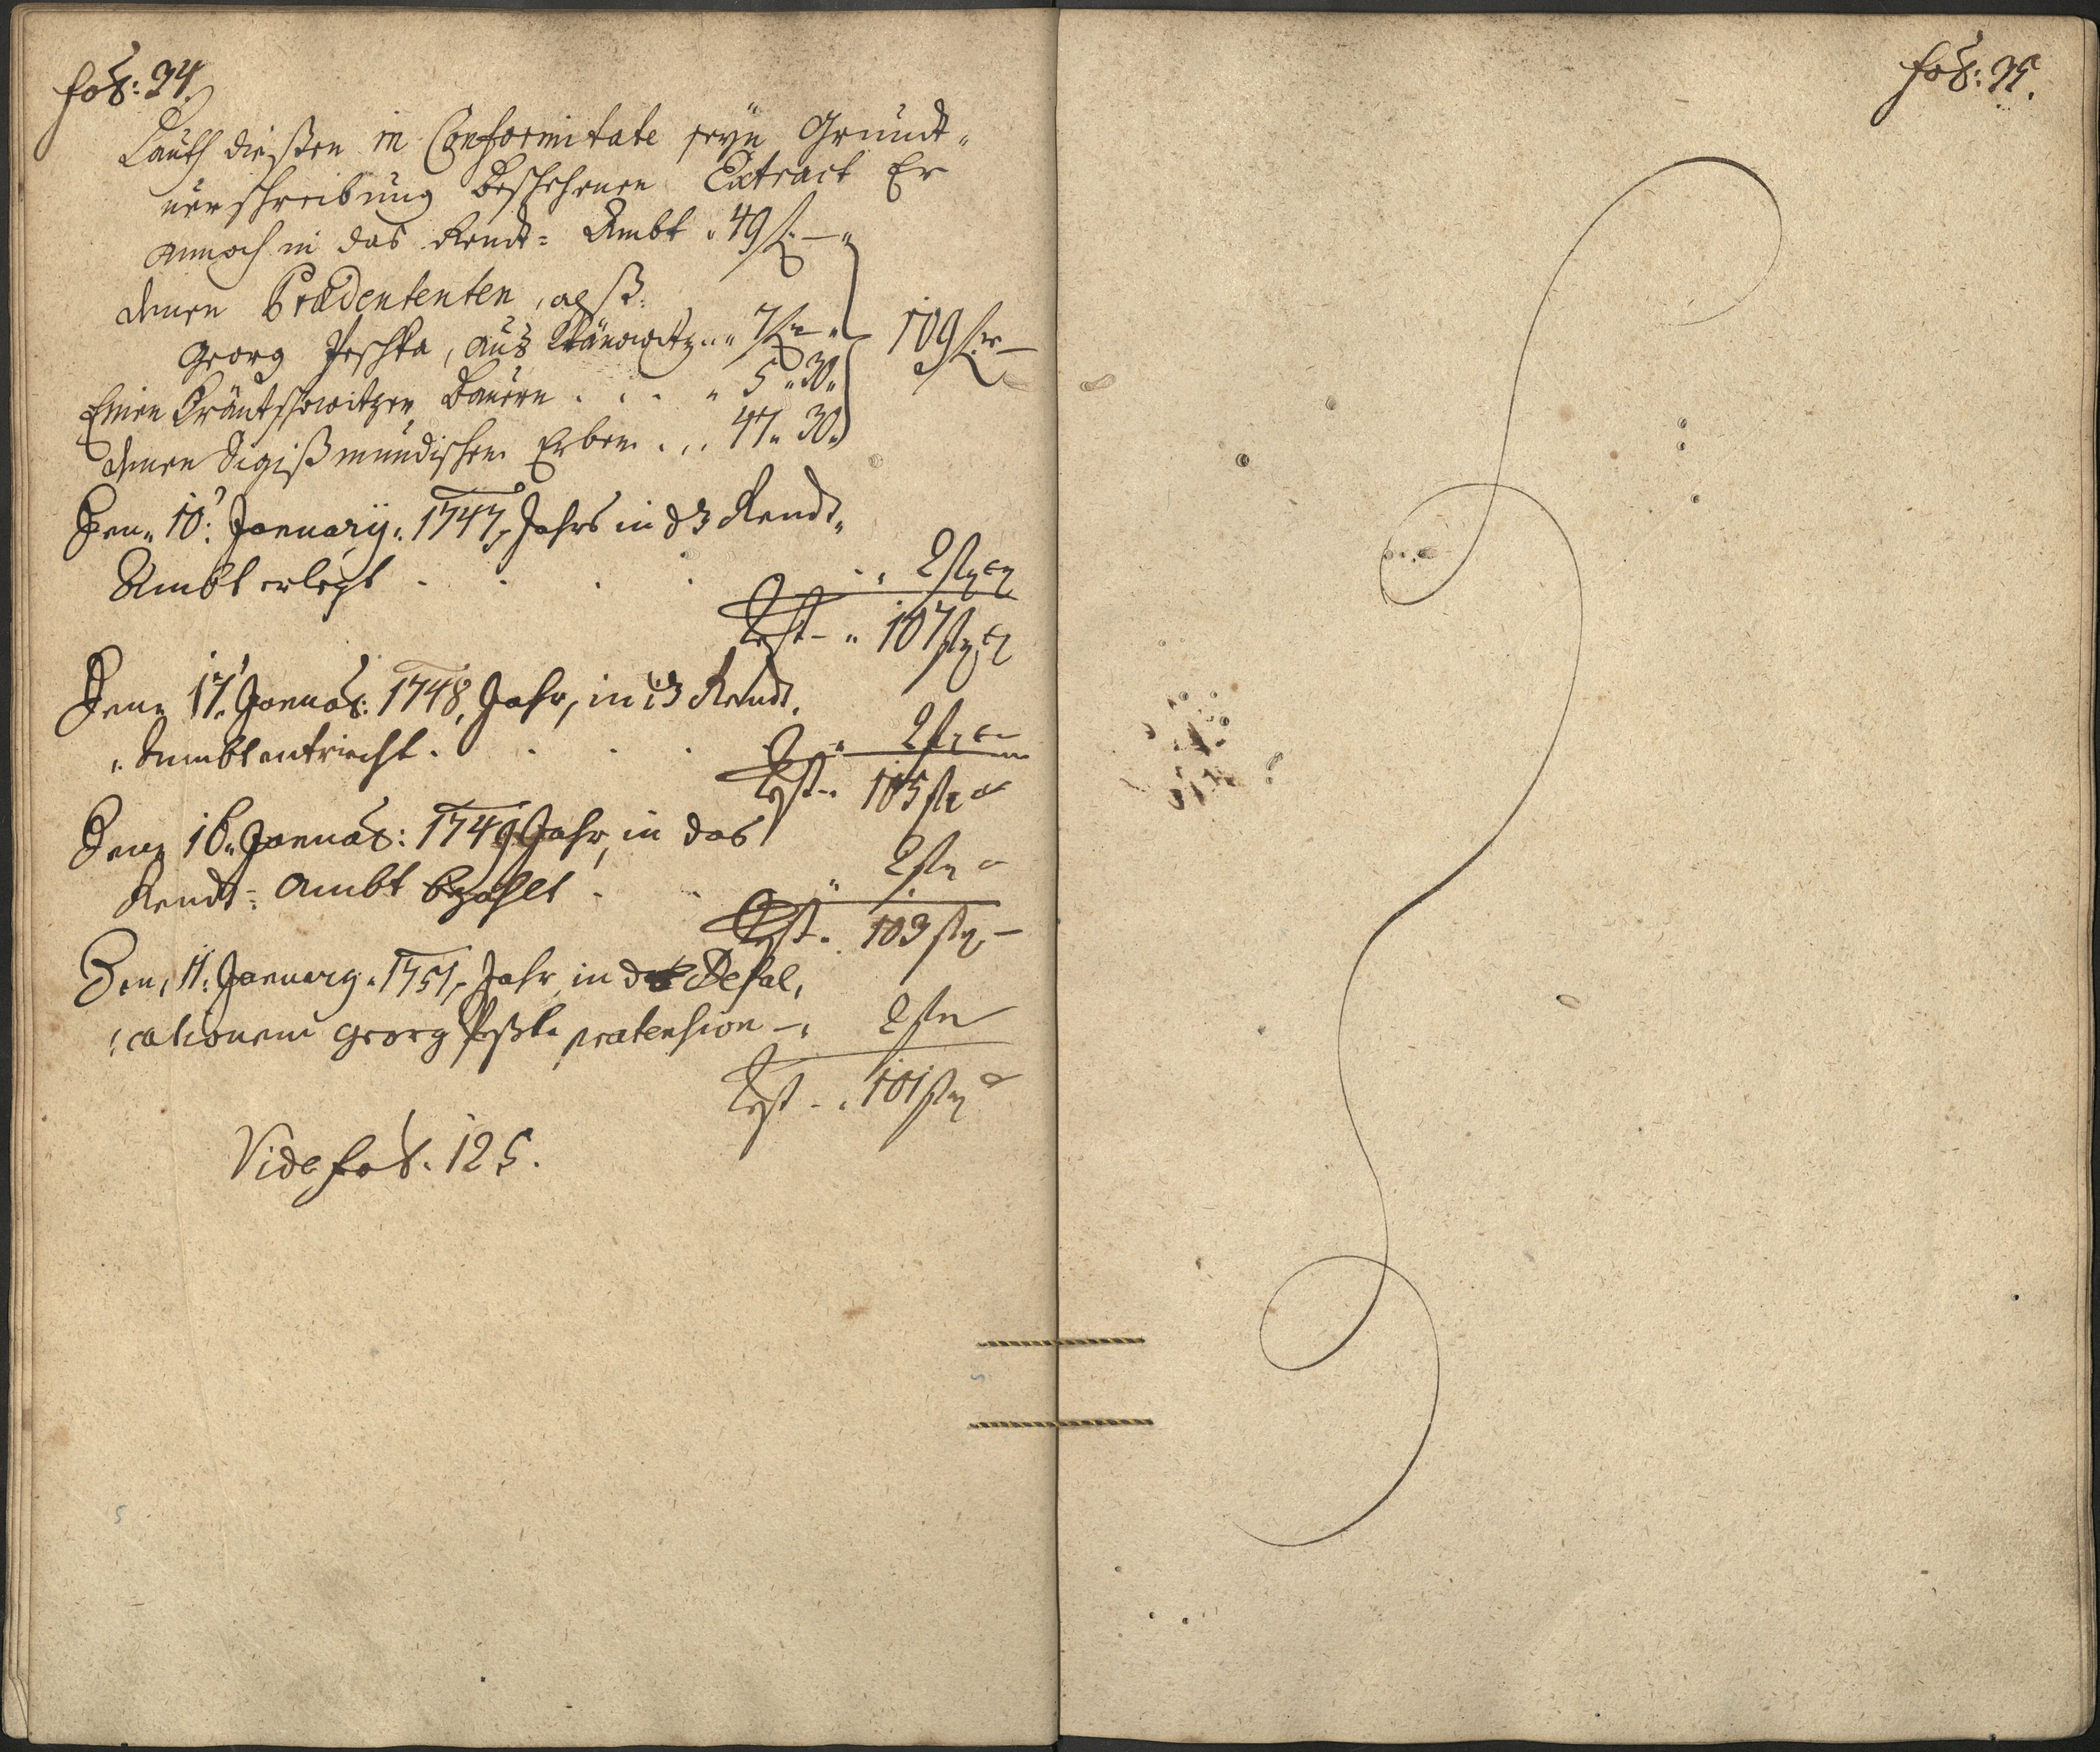 fol: 34.
Lauth dießen in Conformitate seyn Grundt„
verschreibung beschehenen Extract Er
annoch in das Rendt= Ambt „ 49 f. —„
denen Prætendenten, alß:
Georg Peschka, aus „ 7 f „
Einen Bauern . . . „ 5 „ 30„
denen Sigißmundischen Erben . . . 47„ 30„
109 f —
Den„ 10: January„ 1747„ Jahrs in dz Rendt„
Ambt erlegt . . . . . „ 2 f
Rest – „ 107 f
Den 17. Januar: 1748, Jahr, in dz Rendt.
„Ambt entricht . . . . „ 2 f
Rest – „ 105 f
Den 16„ Januar: 1749 Jahr, in das
Rendt= Ambt bezahlt . . „ 2 f
Rest „ 103 f –
Den, 11: January „ 1751„ Jahr, in Defal,
:cationem Georg pratension – „ 2 f
Rest – „ 101 f
Vide fol. 125.
fol: 35.